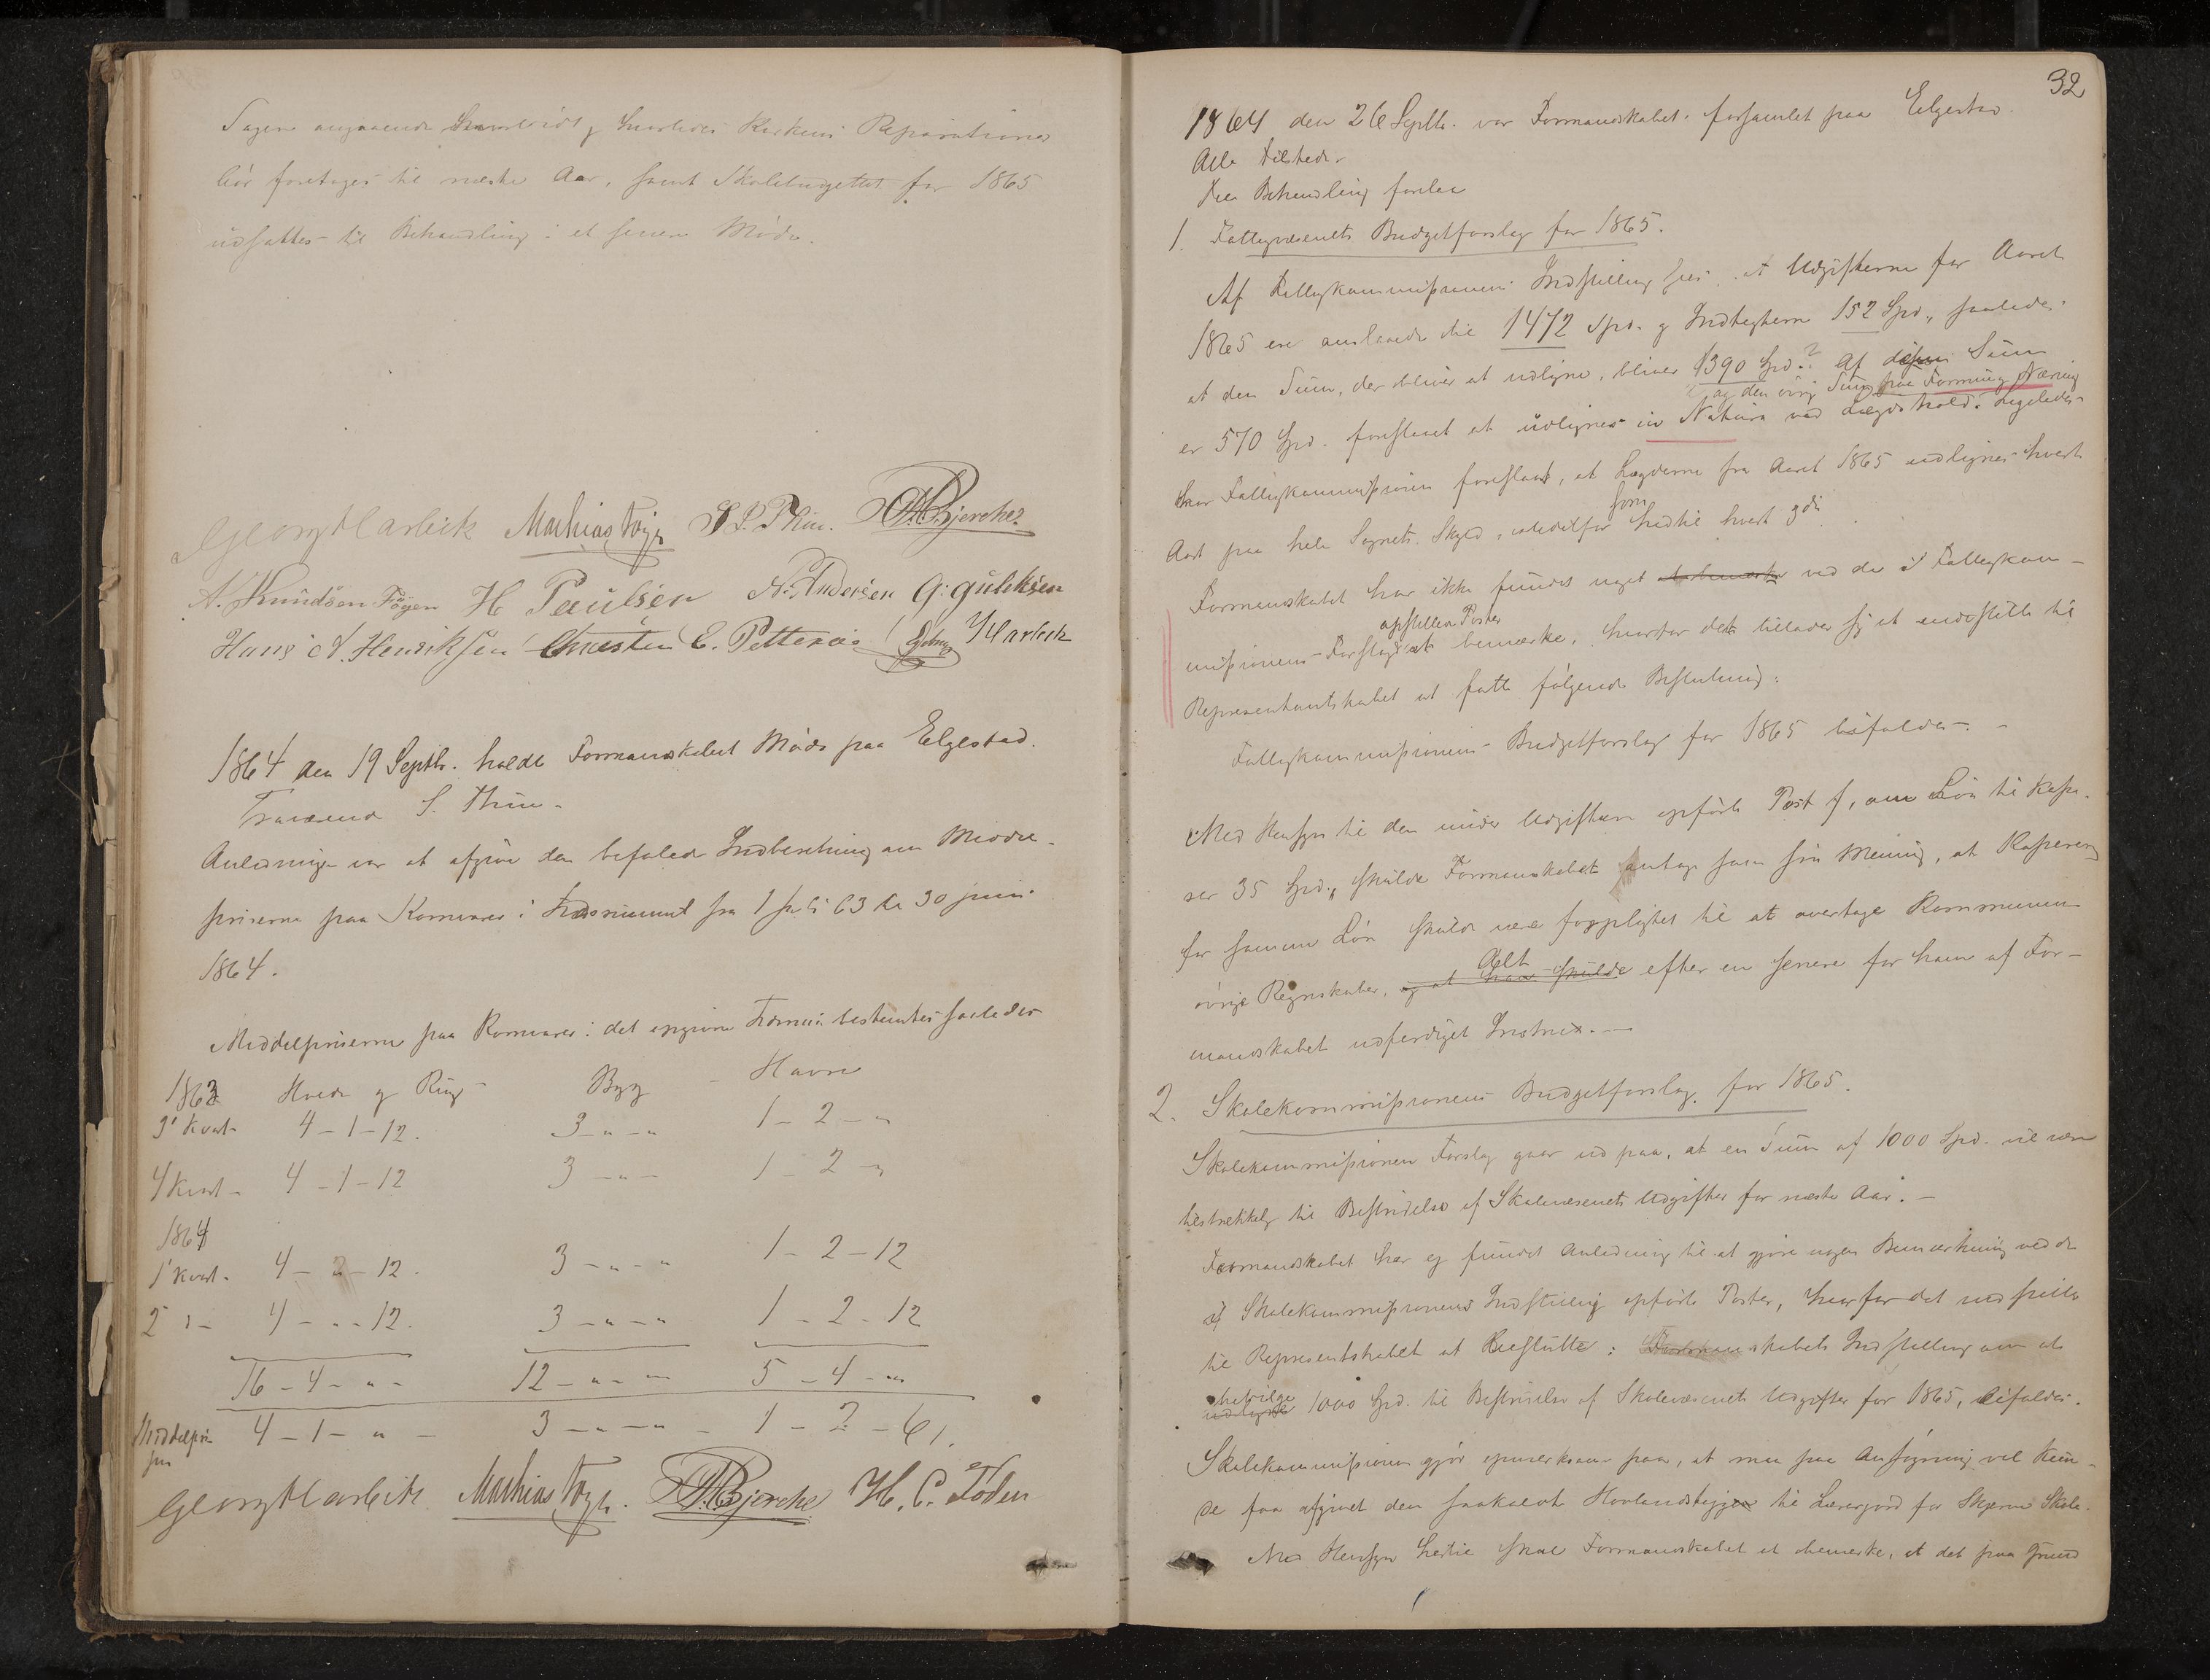 Sagen angaaende hvorvidt og hvorledes Kirkens Reparationer
bør foretages til næste Aar, samt Skolebudgettet for 1865
udsattes til Behandling i et senere Møde.
Georg Harbitz Mathias Foyn S. P. Thue. Bjerche
A. Knudsen Föyen H Paulsen A. Andersen G: gulliksen
Hans A. Henriksen Christen C. Petterøe Harbitz
1864 den 19 Septbr. holdt Formanskabet Møde paa Elgestad.
Fraværend S. Thue.
Anledningen var at afgive den befalede Indberetning om Middel-
priserne paa Kornvarer i Tidsrummet fra 1 Juli 63 til 30 juni
1864.
Middelpriserne paa Kornvarer i det opgivne Tidsrum bestemtes saaledes
1863 Hvede og Rug Byg - Havre
3' Kvart- 4-1-12. 3-"-" 1-2-"
4 Kvart- 4-1-12 3-"- 1-2-"
1864
1' Kvart. 4-"-12. 3-"-" 1-2-12
2 " - 4-"-12. 3-"-" 1-2-12
16-4-"- 12-"-" 5-4-"
Middelpri 4-1-"- 3-"-"- 1-2-6.
sen
Georg Harbitz Mathias Foyn. Bjerche H. C. Foden
32
1864 den 26 Septbr. var Formandskabet forsamlet paa Elgestad.
Alle tilstede.
Til Behandling forelaa
1. Fattigvæsenets Budgetforslag for 1865.
Af Fattigkommissionens Indstilling sees, at Udgifterne for Aaret
1865 ere anslaaede til 1472 Spd. og Indtægterne 152 Spd., saaledes
at den Sum, der bliver at udligne, bliver 1390 Spd.? Af denne Sum
og den øvrige Sum paa Formue og Næring
er 570 Spd. foreslaaet at udlignes in Natura ved Lægdshold. Ligeledes
har Fattigkommissionen foreslaaet, at Lægderne fra Aaret 1865 udlignes hvert
Aar paa hele Sognets Skyld, istedetfor som hidtil hvert 3die
Formandskabet har ikke fundet noget at bemærke ved de i Fattigkom-
opstillede Poster
missionens Forslag at bemærke, hvorfor det tillader sig at indstille til
Representantskabet at fatte følgende Beslutning:
Fattigkommissionens Budgetforslag for 1865 bifaldes. -
Med Hensyn til den under Udgifterne opførte Post f, om Løn til Kasse-
rer 35 Spd., skulde Formanskabet antage som sin Mening, at Kasereren
for samme Løn skulde være forpligtet til at overtage Kommunens
øvrige Regnskaber, og at han skulde Alt efter en senere for ham af For-
mandskabet udferdiget Instrux. -
2. Skolekommissionens Budgetforslag for 1865.
Skolekommissionens Forslag gaar ud paa, at en Sum af 1000 Spd. vil være
tilstrekkelig til Bestridelse af Skolevæsenets Udgifter for næste Aar. -
Formandskabet har ej fundet Anledning til at gjøre nogen Bemærkning ved de
i Skolekommissionens Indstilling opførte Poster, hvorfor det indstiller
til Representskabet at beslutte: Formanskabets Indstilling om at
bevilge
udligne 1000 Spd. til Bestridelse af Skolevæsenets Udgifter for 1865, bifaldes.
Skolekommissionen gjør opmerksom paa, at man paa Ansøgning vel kun-
de faa afgivet den saakaldte Hovlandsbygen til Lærerjord for Skjerve Skole.
Med Hensyn hertil skal Formandskabet et bemerke, at det paa Grund